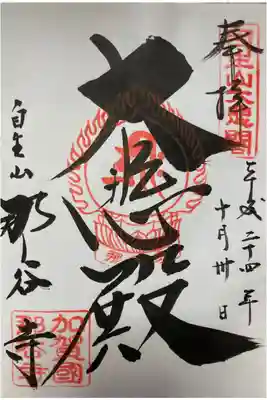 奉拝
平成二十四年
十月卅日
大悲殿
自生山
那谷寺
加賀國
那谷寺